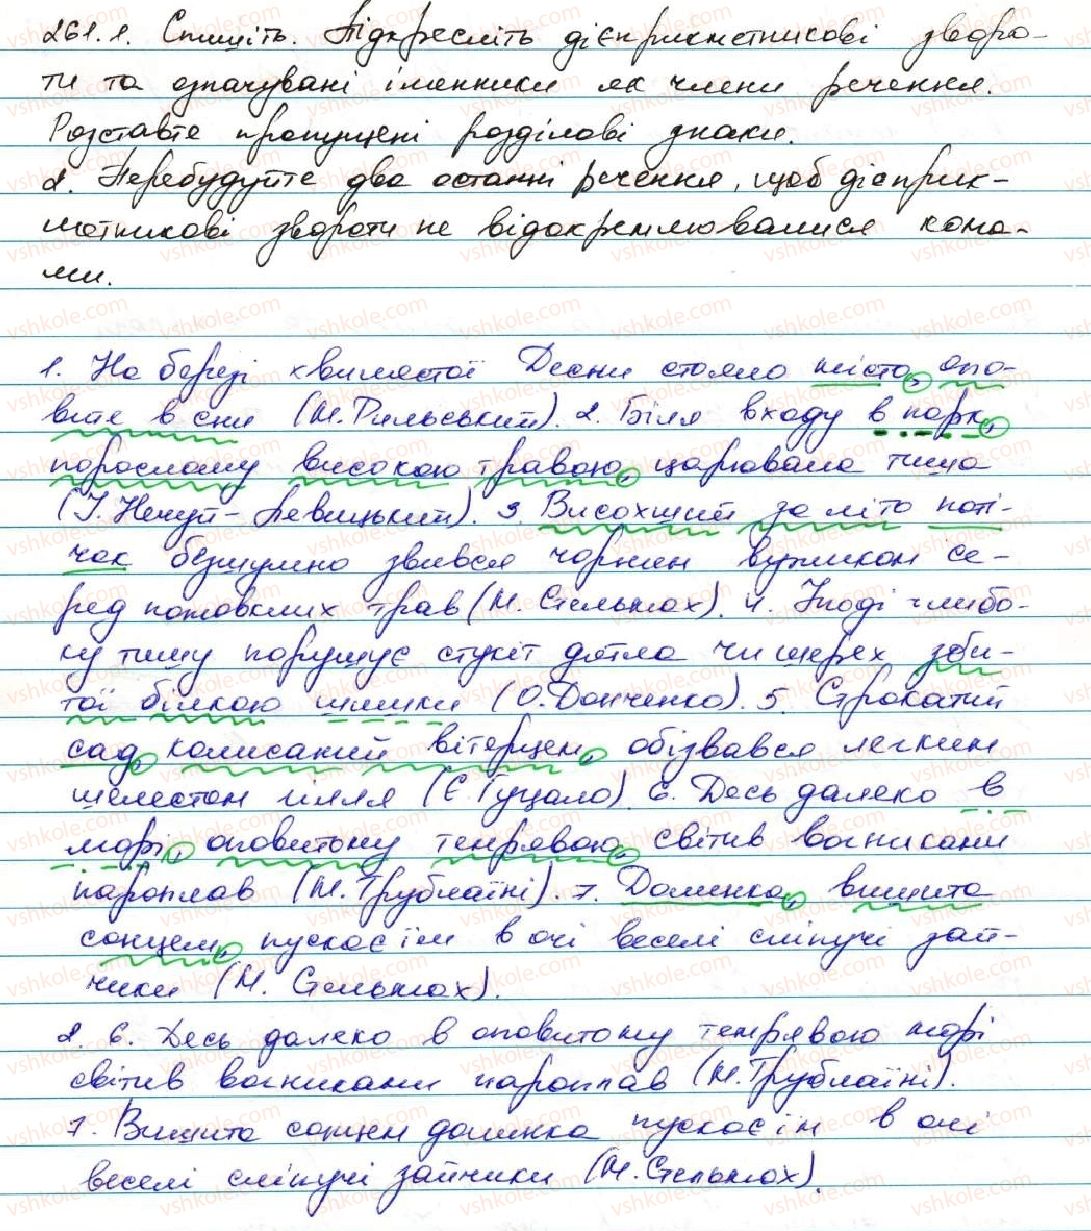 261.1. Спишіть. Підкресліть дієприкметникові зворо-
ти та означувані іменники як члени речення.
Розставте пропущені розділові знаки.
2. Перебудуйте два останні речення, щоб дієприк-
метникові звороти не відокремлювалися кома-
ми.
1. На березі хвилястої Десни стояло місто, опо-
вите в сни (М. Рильський). 2. Біля входу в парк,
порослому високою травою, царювала тиша
(І. Нечуй-Левицький). 3. Висохший за літо поті-
чок безшумно звивсь чорним вужиком се-
ред пожовклих трав (М. Стельмах). 4. Іноді глибо-
ку тишу порушує стукіт дятла чи шерех зби-
тої білкою шишки (О. Донченко). 5. Строкатий
сад, колисаний вітерцем, обізвався легким
шелестом гілля (Є. Гуцало). 6. Десь далеко в
морі, оповитому темрявою, світив вогниками
пароплав (М. Трублаїні). 7. Долинка, вишита
сонцем, пускає їм в очі веселі сліпучі зай-
чики (М. Стельмах).
2. 6. Десь далеко в оповитому темрявою морі
світив вогниками пароплав (М. Трублаїні).
7. Вишита сонцем долинка пускає їм в очі
веселі сліпучі зайчики (М. Стельмах).